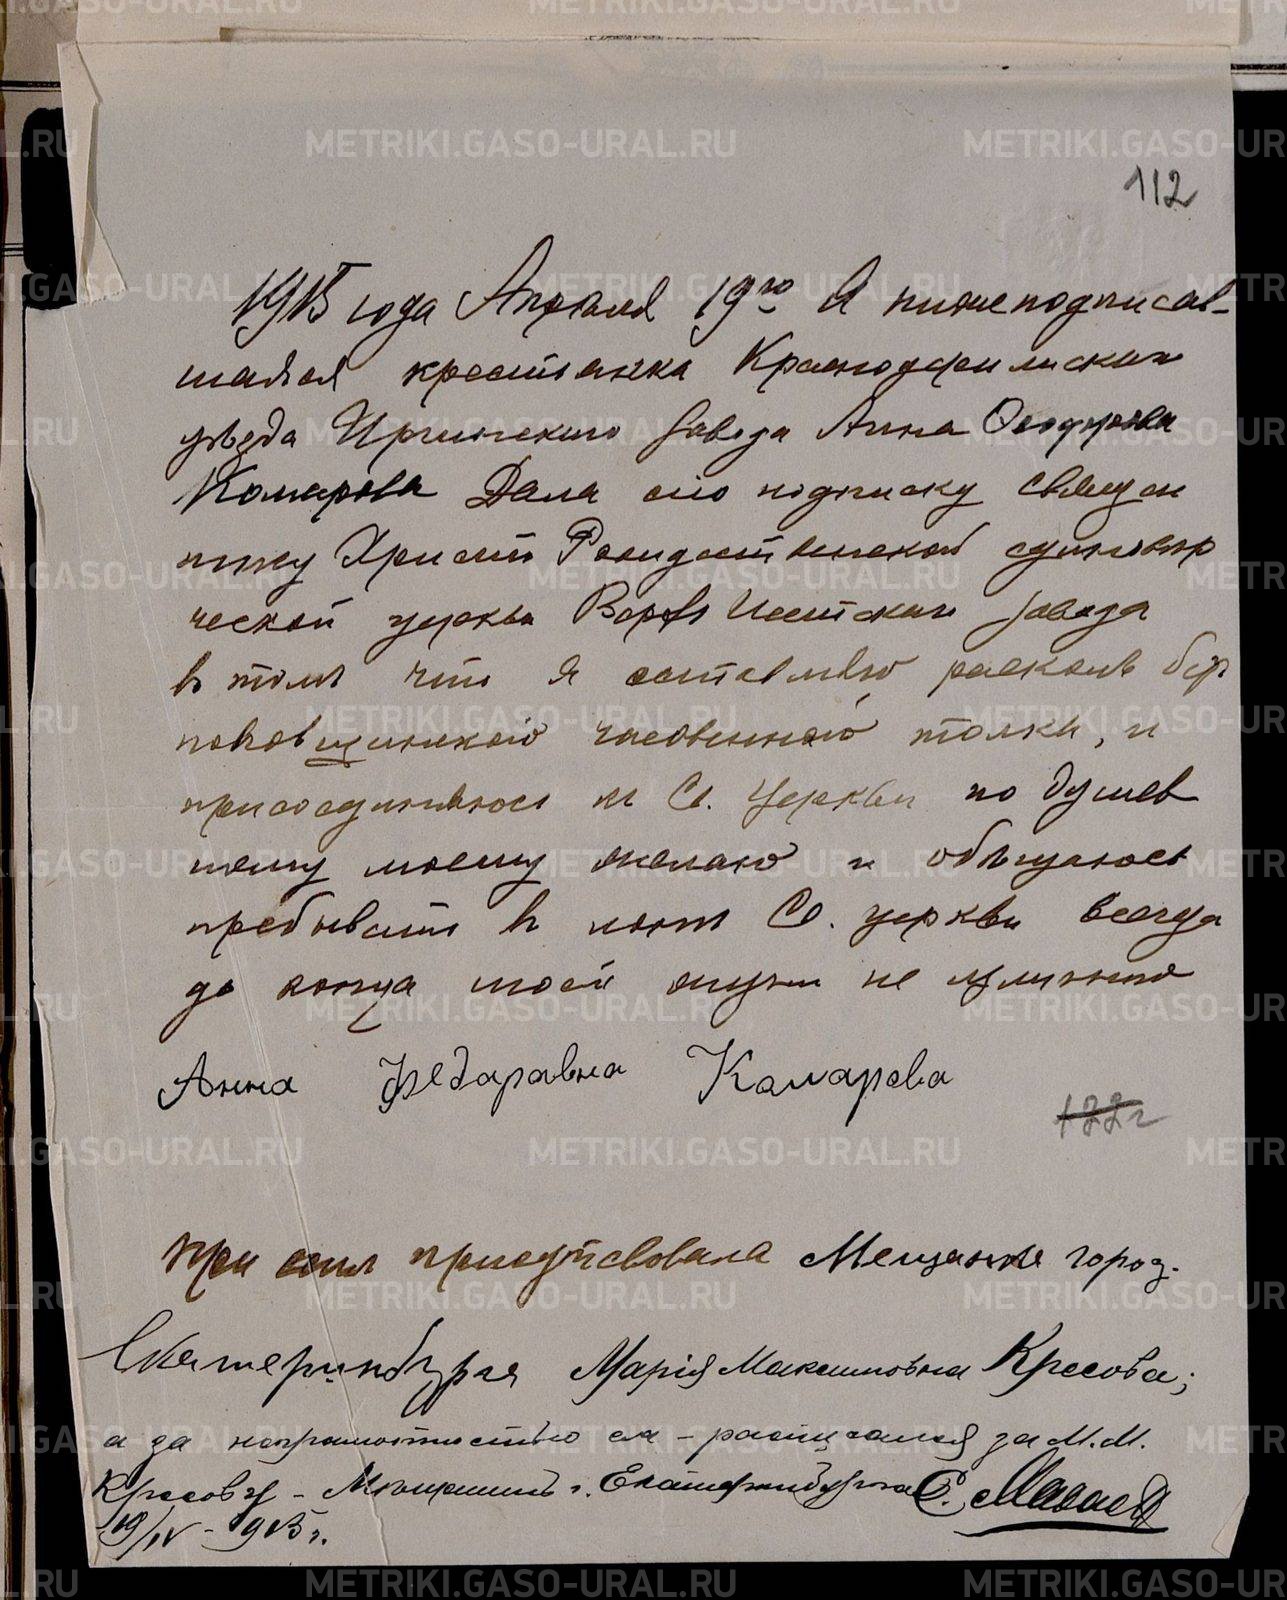 112
1915 года Апреля 19го Я нижеподписав-
шаяся крестьянка Красноуфимскаго
уѣзда Иргинскаго Завода Анна Ѳеодорова
Комарова Дала сію подписку священ
нику Христо Рождественской единовѣр
ческой церкви Верхъ Исетскаго завода
въ томъ что я оставляю расколъ бѣг
поповщинскаго часовеннаго толка, и
присоединяюсь къ Св. Церкви по душев
ному моему желаю и обѣщаюсь
пребывать въ Св. церкви всегда
до конца моей жизни не
Анна Федаравна Камарова
122г
При семъ присутсвовала Мещанка город.
Екатеринбурга Марія Максимовна Кресова;
а за неграмотностью ея - расписался за М.М.
Кресову - Мещанинъ г. Екатеринбурга С.
19/IV - 1915 г.
METRIKI.GASO-URAL.RU